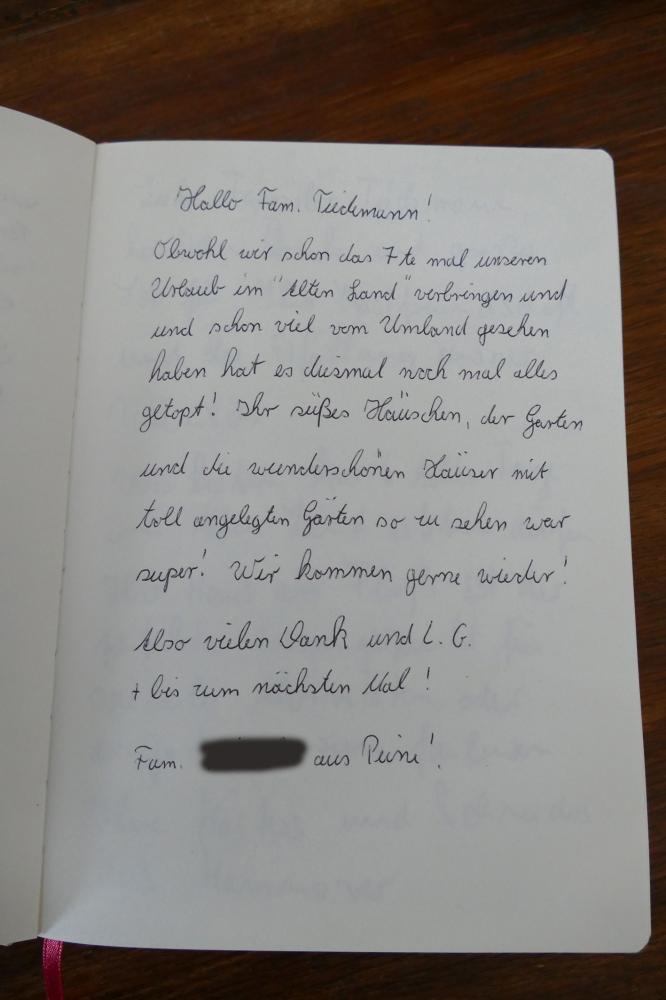 Hallo Fam. Tiedemann!
Obwohl wir schon das 7te mal unseren
Urlaub im "Alten Land" verbringen und
und schon viel vom Umland gesehen
haben hat es diesmal noch mal alles
getopt! Ihr süßes Häuschen, der Garten
und die wunderschönen Häuser mit
toll angelegten Gärten so zu sehen war
super! Wir kommen gerne wieder!
Also vielen Dank und L. G.
+ bis zum nächsten Mal!
Fam. aus Peine!